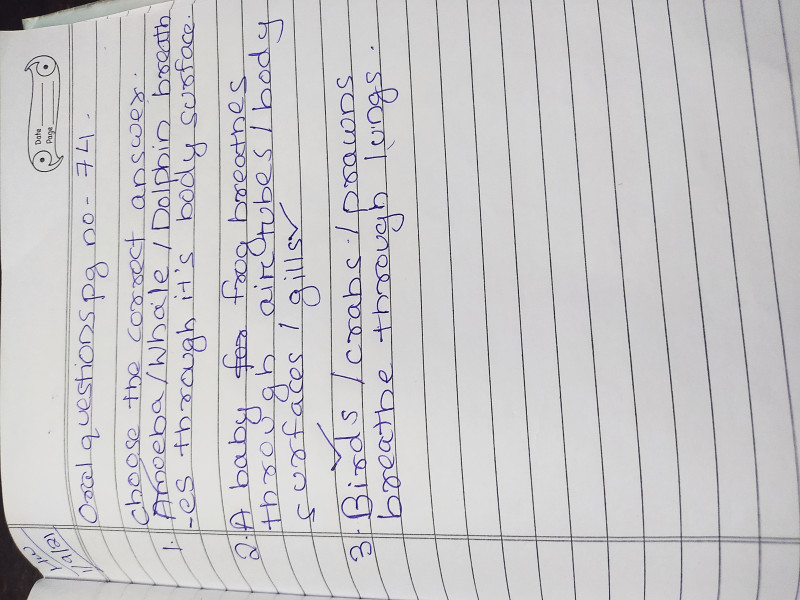 Date
Page
H.W
1/9/21
Oral questions pg no - 74.
choose the correct answer.
1. Amoeba / Whale / Dolphin breath
-es through it's body surface.
2. A baby for frog breathes
through air tubes / body
surfaces / gills ✓
3. Birds / crabs / prawns
breathe through lungs.